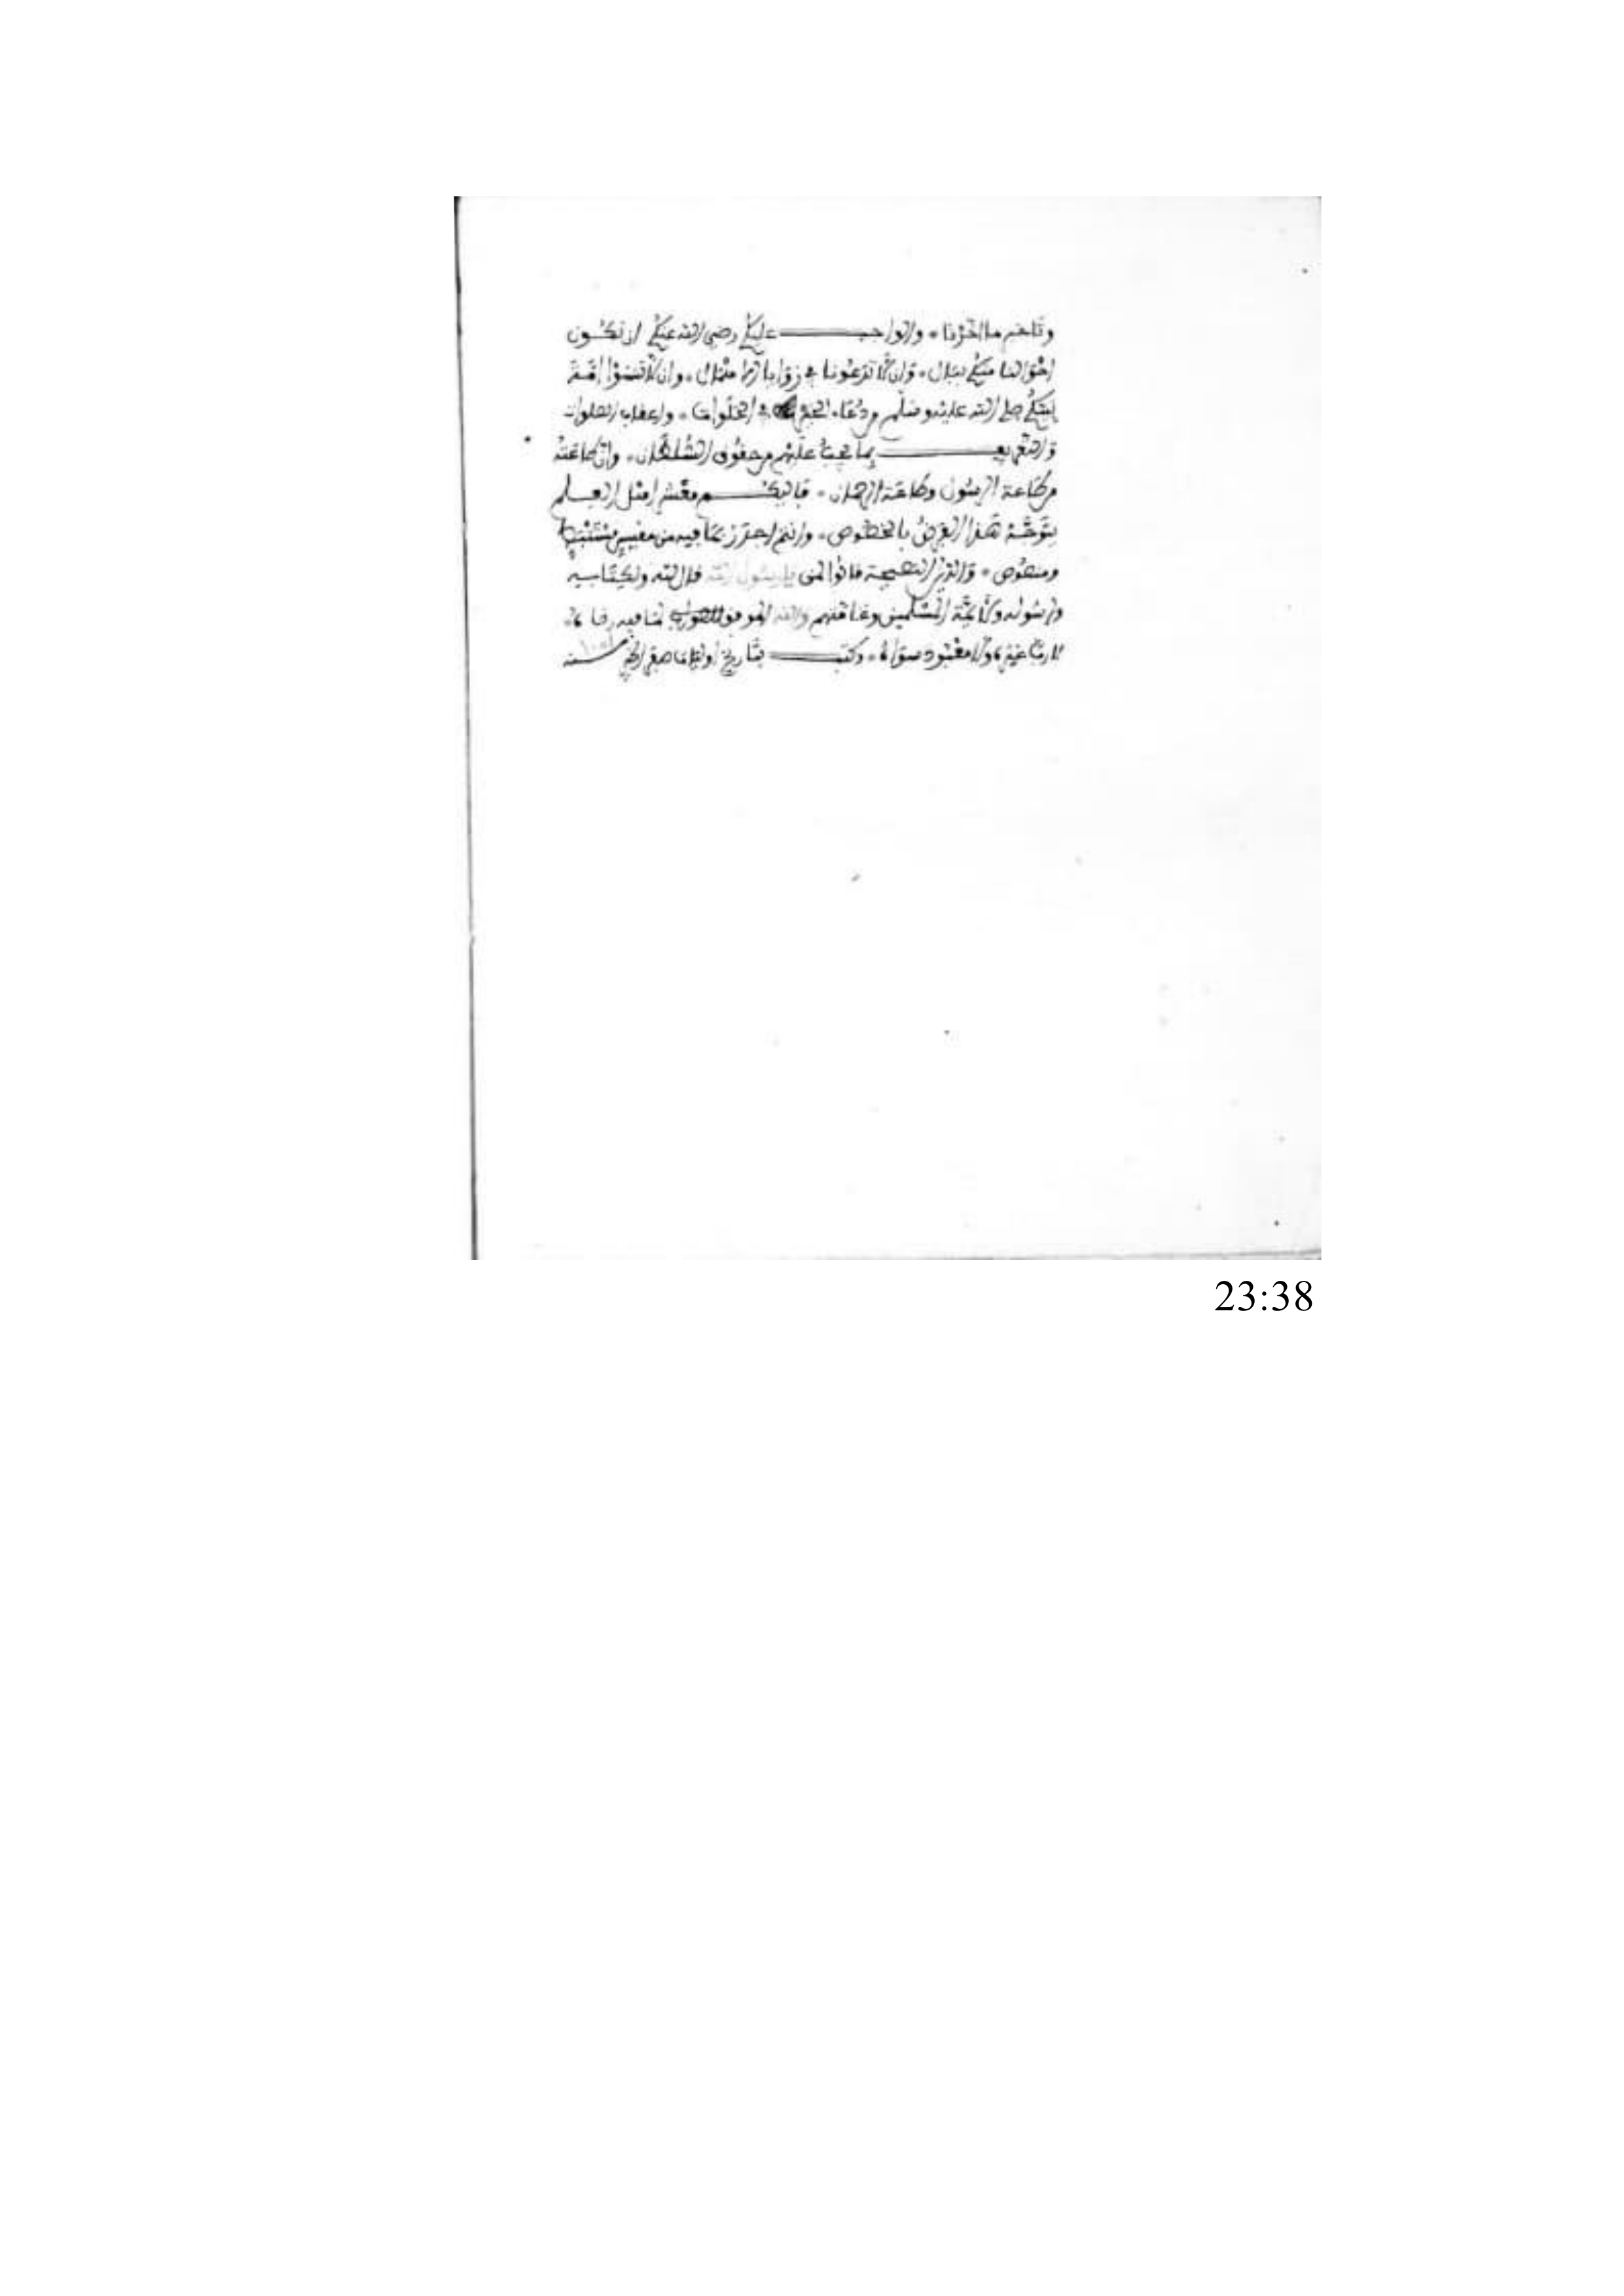 وتاخير ما اخرنا * والواجب عليكم رضي الله عنكم ان تكون
احوالنا منكم ببال * وان لا تدعونا في زوايا الاهمال * وان لا تنسوا امة
نبيكم صلى الله عليه وسلم من دعاء الخير في الخلوات * واعقاب الصلوات
والتعريف بما يجب عليهم من حقوق السلطان * وان طاعته
من طاعة الرسول وطاعة الرحمان * فاليكم معشر اهل العلم
يتوجه هذا الغرض بالخصوص * وانتم احرز بما فيه من مقيس مستنبط
ومنصوص * والدين النصيحة قالوا لمن يا رسول الله قال لله ولكتابه
ولرسوله ولائمة المسلمين وعامتهم والله الموفق للصواب
لا رب غيره ولا معبود سواه * وكتب بتاريخ اوائل صفر الخير سنة
23:38